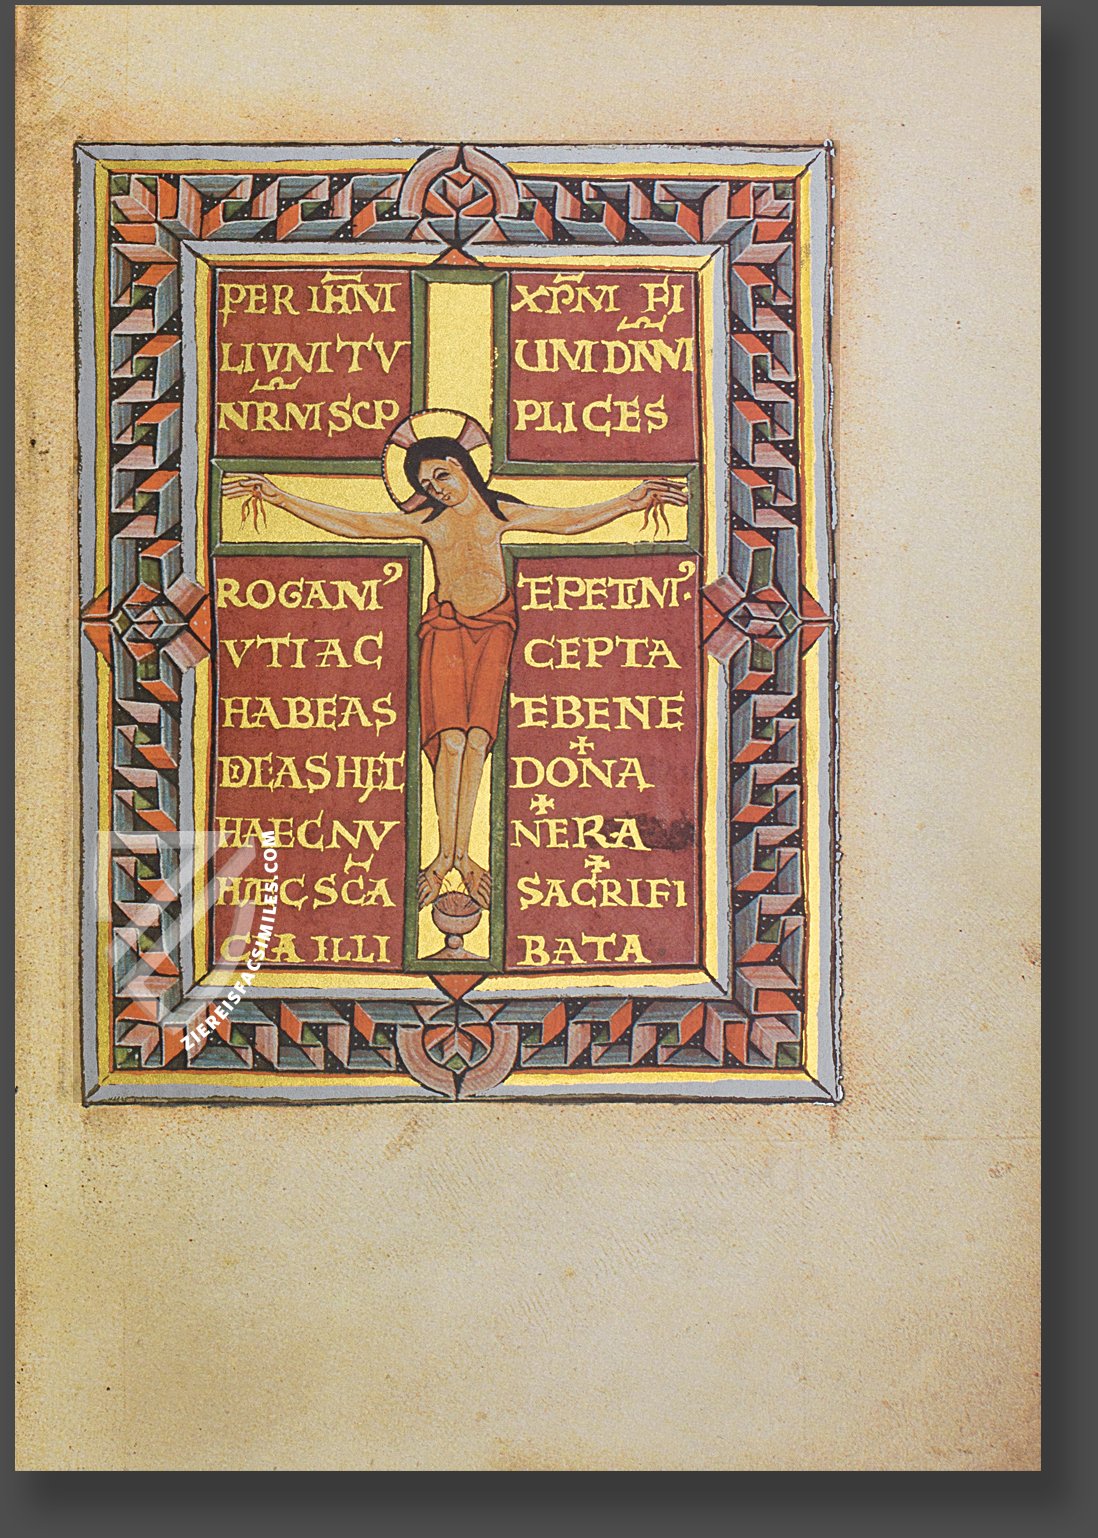 PER IHM XPM FI
LIVM TV UM DNM
NRM SCP PLICES
ROGAMꝰ E PETIMꝰ.
VTI AC CEPTA
HABEAS E BENE
DICAS HEC DONA
HAEC MV NERA
HÆC SCA SACRIFI
CIA ILLI BATA
ZIEREISFACSIMILES.COM